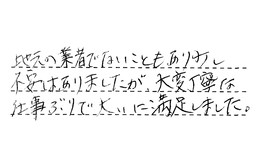 地元の業者でないこともあり少し
不安はありましたが、大変丁寧な
仕事ぶりで大いに満足しました。